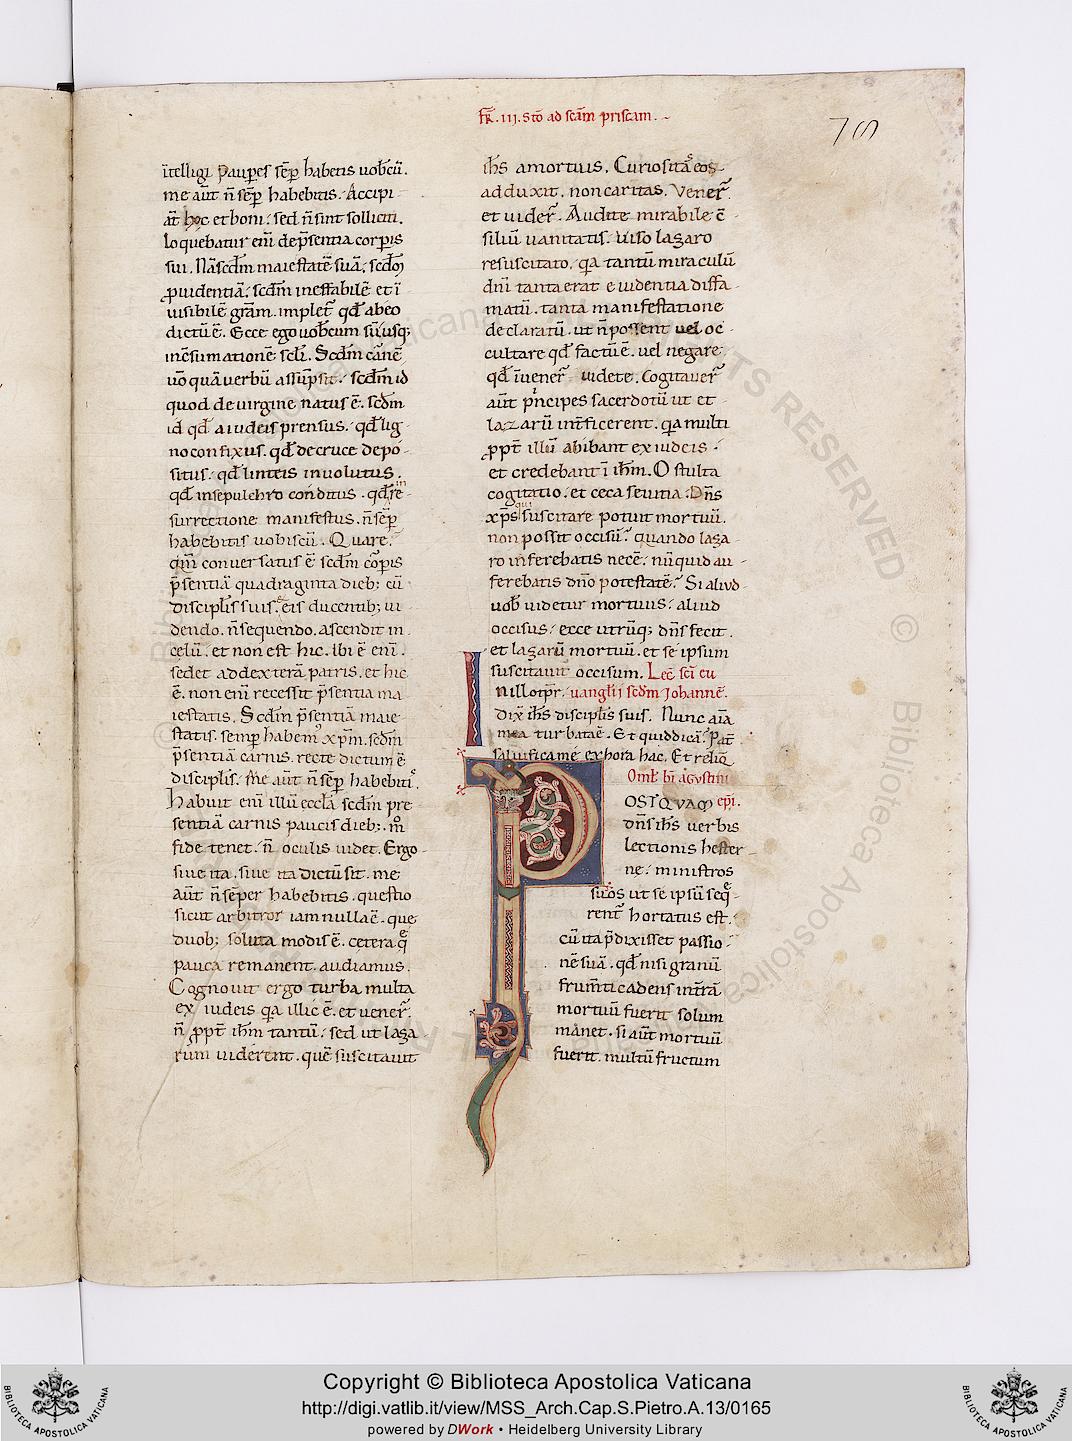 fr̅. iii. Sto̅ ad sca̅m priscam.
78
i̅telligi. Paup̲es̲ se̅p̲ habetis uob̅cu̅.
me au̅t n̅ se̅p̲ habebitis. Accipi
at̅ hoc et boni. sed n̅ sint solliciti.
loquebatur eni̅ de p̅sentia corp̲is
sui. Na̅ scd̅m maiestate̅ sua̅. scd̅m
p̲uidentia̅. scd̅m ineffabile̅ et i̅
uisibile̅ gr̅am. implet̅ qd̅ ab eo
dictu̅ e̅. Ecce ego uob̅cum su̅ usq;
in c̅sumatione̅ scl̅i. Scd̅m carne̅
u̅o qua̅ uerbu̅ assu̅psit. scd̅m id
quod de uirgine natus e̅. scd̅m
id qd̅ a iudeis prensus. qd̅ lig
no confixus. qd̅ de cruce depo
situs. qd̅ linteis inuolutus.
qd̅ in sepulchro conditus. qd̅ in re
surrectione manifestus. n̅ se̅p̲
habebitis uobiscu̅. Quare.
qm̅ conuersatus e̅ scd̅m corp̲is
p̅sentia̅ quadraginta dieb; cu̅
discipl̅is suis. et eis ducentib; ui
dendo. n̅ sequendo. ascendit in
celu̅. et non est hic. Ibi e̅ eni̅.
sedet ad dextera̅ patris. et hic
e̅. non eni̅ recessit p̅sentia ma
iestatis. Scd̅m p̅sentia̅ maie
statis. semp̲ habem' xp̅m. scd̅m
p̅sentia̅ carnis. recte dictum e̅
discipl̅is. Me au̅t n̅ se̅p̲ habebiti.
Habuit eni̅ illu̅ eccl̅a scd̅m pre
sentia̅ carnis paucis dieb; m̊
fide tenet. n̅ oculis uidet. Ergo
siue ita. siue ita dictu̅ sit. me
au̅t n̅ se̅per habebitis. questio
sicut arbitror iam nulla e̅. que
duob; soluta modis e̅. cetera q̅
pauca remanent. audiamus.
Cognouit ergo turba multa
ex iudeis q̲a illic e̅. et uener̅.
n̅ p̲pt̅ ih̅m tantu̅. sed ut laza
rum uiderent. que̅ suscitauit
ih̅s a mortuis. Curiositas eos
adduxit. non caritas. Vener̅.
et uider̅. Audite mirabile c̅
siliu̅ uanitatis. Uiso lazaro
resuscitato. q̲a tantu̅ miraculu̅
dn̅i tanta erat euidentia diffa
matu̅. tanta manifestatione
declaratu̅. ut n̅ possent uel oc
cultare qd̅ factu̅ e̅. uel negare
qd̅ i̅uener̅ uidete. Cogitauer̅
au̅t p̊ncipes sacerdotu̅ ut et
lazaru̅ int̅ficerent. q̲a multi
p̲pt̅ illu̅ abibant ex iudeis.
et credebant i̅ ih̅m. O stulta
cogitatio. et ceca seuitia. Dn̅s
xp̅s qui suscitare potuit mortuu̅.
non possit occisu̅. quando laza
ro inferebatis nece̅. nu̅quid au
ferebatis dn̅o potestate̅. Si aliud
uob̅ uidetur mortuus. aliud
occisus. ecce utru̅q; dn̅s fecit.
et lazaru̅ mortuu̅. et se ipsum
suscitauit occisum. Lec̅. sc̅i eu
In illo tp̅r. uangl̅ii scd̅m Iohanne̅.
dix̅ ih̅s discipl̅is suis. Nunc ai̅a
mea turbata e̅. Et quid dica̅. Pat̅
saluifica me ex hora hac. Et reliq̅
Oml̅. bi̅ agustini
epi̅.
POSTQVAM
dn̅s ih̅s uerbis
lectionis hester
ne. ministros
suos ut se ipsu̅ seq̅
rent̅ hortatus est.
cu̅ ita p̅dixisset passio
ne̅ sua̅. qd̅ nisi granu̅
frum̅ti cadens in t̅ra̅
mortuu̅ fuerit solum
manet. si au̅t mortuu̅
fuerit. multu̅ fructum
Copyright © Biblioteca Apostolica Vaticana
http://digi.vatlib.it/view/MSS_Arch.Cap.S.Pietro.A.13/0165
powered by DWork • Heidelberg University Library
BIBLIOTECA APOSTOLICA VATICANA
BIBLIOTECA APOSTOLICA VATICANA